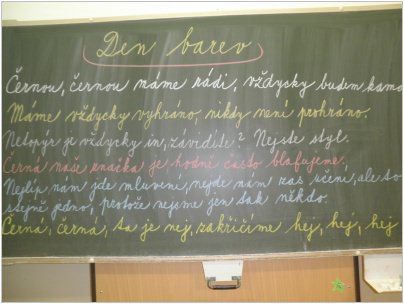 Den barev
Černou, černou máme rádi, vždycky budem kamo
Máme vždycky vyhráno, nikdy není prohráno.
Netopýr je vždycky in, závidíte? Nejste styl.
Černá naše značka je, hodně často blafujeme.
Nejlíp nám jde mluvení, nejde nám zas učení, ale to
stejně jedno, protože nejsme jen tak někdo.
Černá, černá, ta je nej, zakřičíme hej, hej, hej